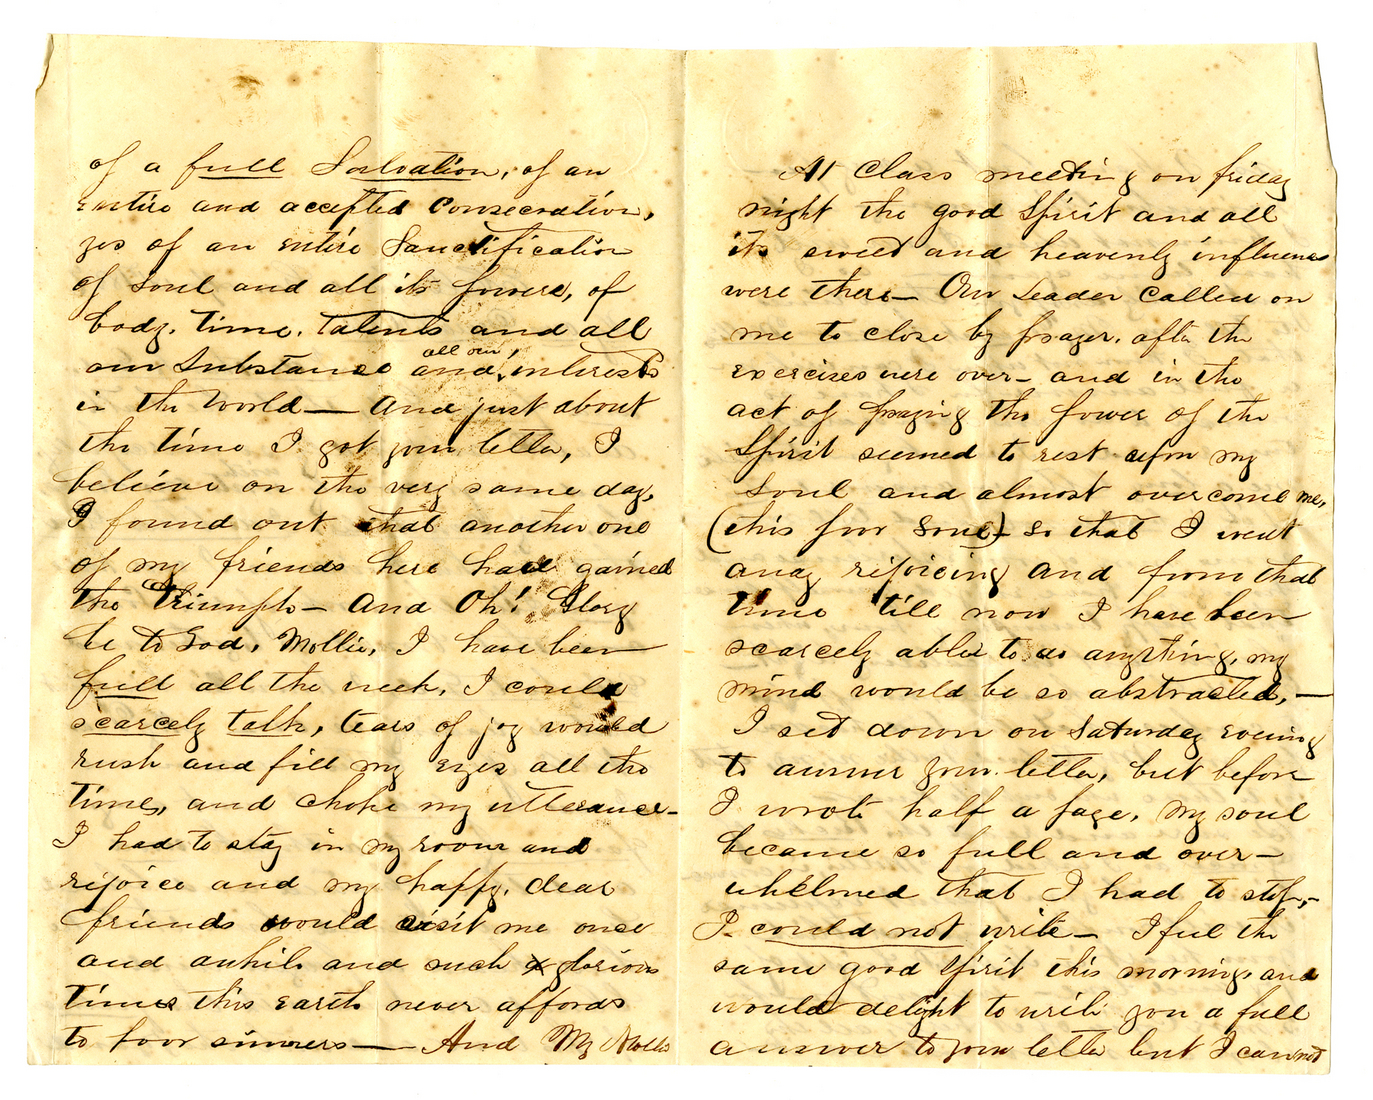 of a full Salvation, of an
entire and accepted Consecration,
yes of an entire Sanctification
of soul and all its powers, of
body, time, talents and all
our substance and all our interests
in the world — And just about
the time I got your letter, I
believe on the very same day,
I found out that another one
of my friends here have gained
the Triumph — And Oh! Glory
be to God, Mollie, I have been
full all the week, I could
scarcely talk, tears of joy would
rush and fill my eyes all the
time, and choke my utterance —
I had to stay in my room and
rejoice and my happy, dear
friends would visit me once
and awhile and such glorious
times this earth never affords
to poor sinners — And My Mollie
At Class meeting on friday
night the good Spirit and all
its sweet and heavenly influences
were there — Our Leader Called on
me to close by prayer, after the
exercises were over — and in the
act of praying the power of the
Spirit seemed to rest upon my
soul and almost overcome me,
(this poor soul) — so that I went
away rejoicing and from that
time till now I have been
scarcely able to do anything, my
mind would be so abstracted, —
I set down on Saturday evening
to answer your letter, but before
I wrote half a page, my soul
became so full and over-
whelmed that I had to stop, —
I could not write — I feel the
same good Spirit this morning, and
would delight to write you a full
answer to your letter but I cannot